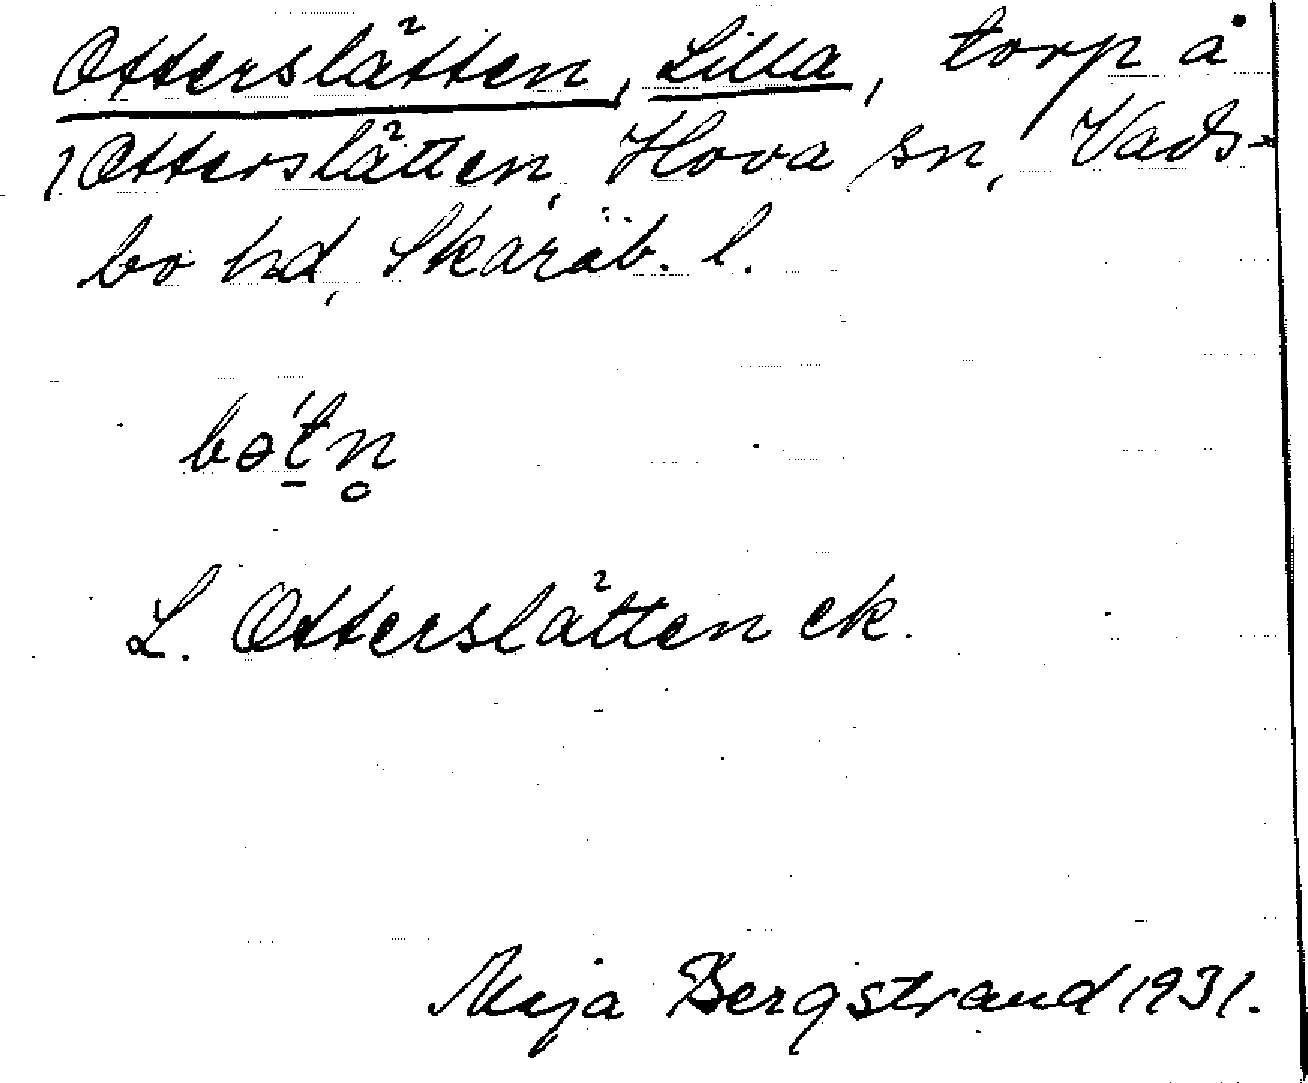 Otterslätten, Lilla, torp å
1 Otterslätten, Hova sn, Vads-
bo hd, Skarab. l.
bo̱tn̥
L. Otterslätten ek.
Maja Bergstrand 1931.